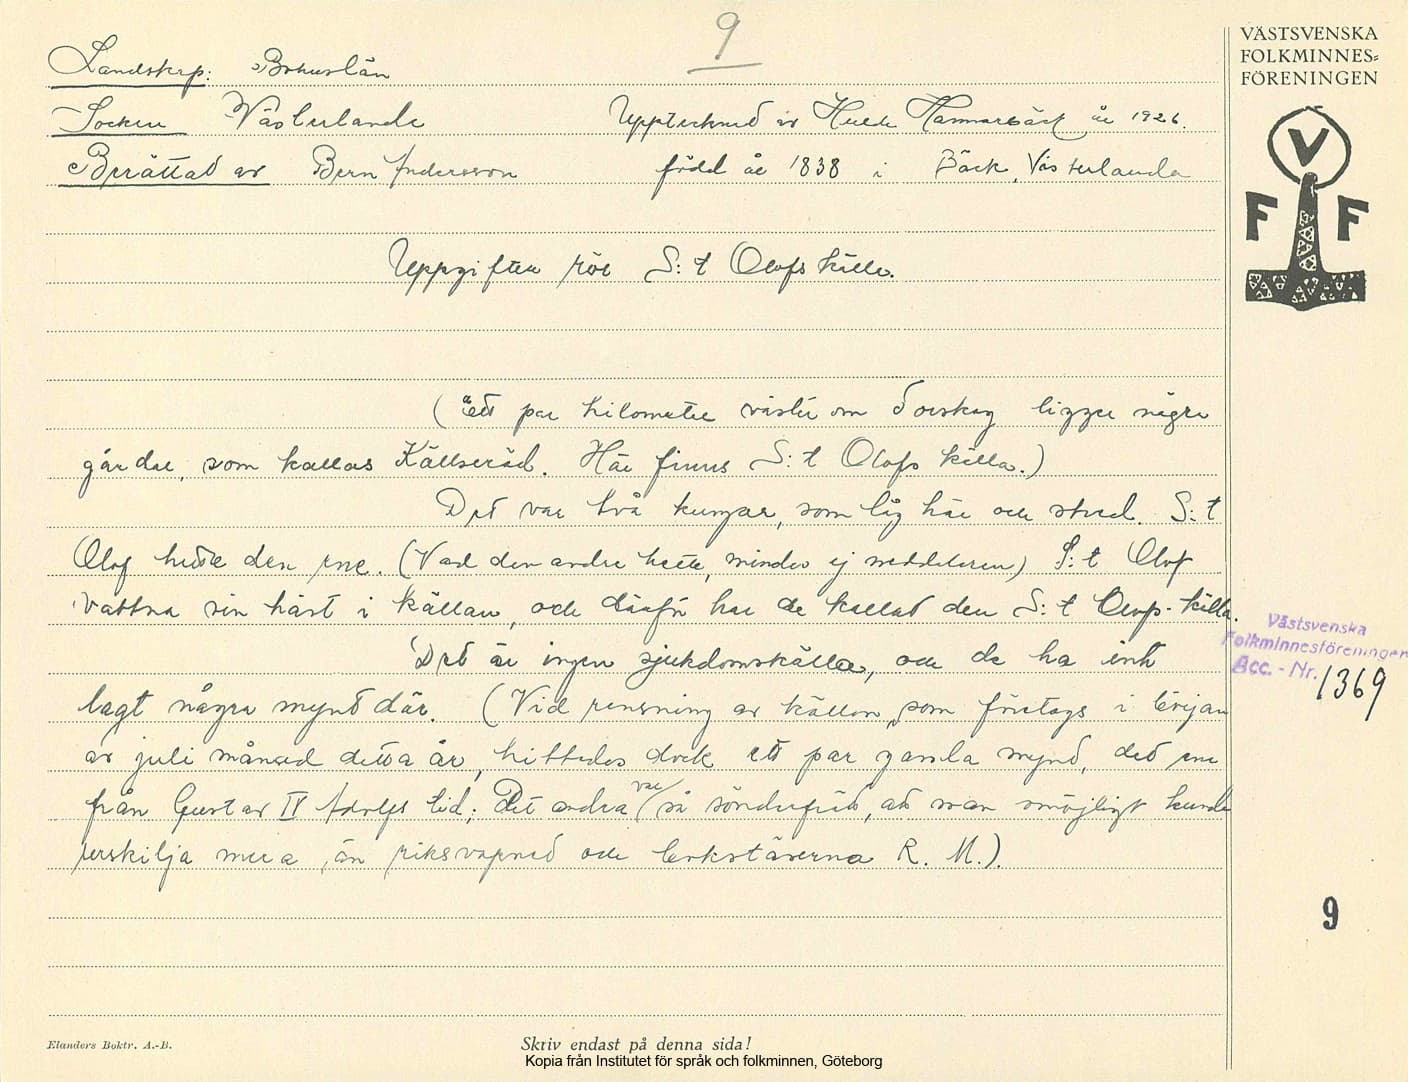 9
VÄSTSVENSKA
FOLKMINNES=
FÖRENINGEN
V
F F
Landskap: Bohuslän
Socken Västerlanda Upptecknad av Hulda Hammarbäck år 1926.
Berättad av Bern Andersson född år 1838 i Bäck, Västerlanda
Uppgifter rör S:t Olofs källa.
(Ett par kilometer väster om Torskog ligger några
gårdar, som kallas Källseröd. Här finns S:t Olofs källa.)
Det var två kungar, som låg här och stred. S:t
Olof hette den ene. (Vad den andre hette, mindes ej meddelaren) S:t Olof
vattna sin häst i källan, och därför har de kallat den S:t Olofs-källa.
Det är ingen sjukdomskälla, och de ha inte
lagt några mynt där. (Vid rensning av källan, som företogs i början
av juli månad detta år, hittades dock ett par gamla mynt, det ena
från Gustav IV Adolfs tid; Det andra var så sönderfrätt, att man omöjligt kunde
urskilja mera än riksvapnet och bokstäverna R. M.).
Västsvenska
Folkminnesföreningen
Acc. - Nr. 1369
9
Elanders Boktr. A.-B.
Skriv endast på denna sida!
Kopia från Institutet för språk och folkminnen, Göteborg